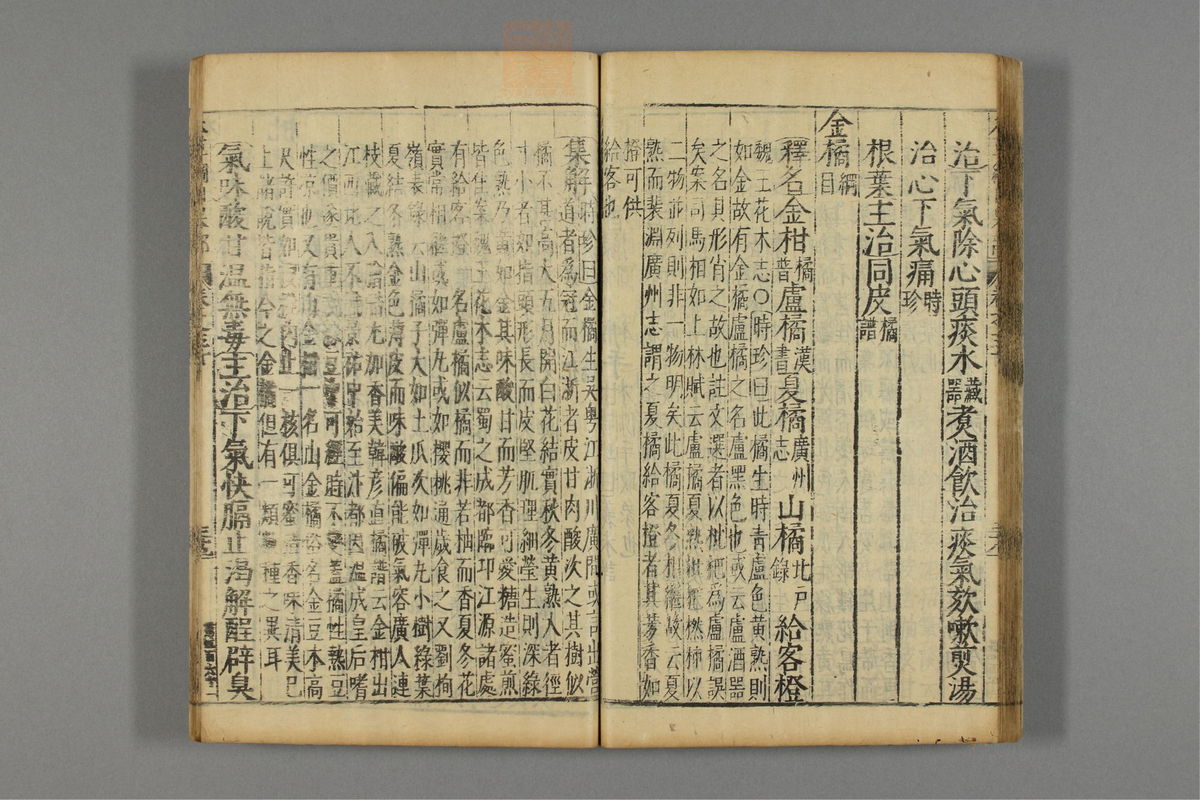 治下氣除心頭痰水藏器煮酒飲治痰氣欬嗽煎湯
治心下氣痛時珍
根葉主治同皮橘譜
金橘綱目
釋名金柑橘譜盧橘漢書夏橘廣州志山橘北戶錄給客橙
魏王花木志○時珍曰此橘生時青盧色黃熟則
如金故有金橘盧橘之名盧黑色也或云盧酒器
之名其形肖之故也註文選者以枇杷為盧橘誤
矣案司馬相如上林賦云盧橘夏熟枇杷橪柿以
二物並列則非一物明矣此橘夏冬相繼故云夏
熟而裴淵廣州志謂之夏橘給客橙者其芳香如
橙可供
給客也
集解時珍曰金橘生吳粵江浙川廣間或言出營
道者為冠而江浙者皮甘肉酸次之其樹似
橘不甚高大五月開白花結實秋冬黃熟大者徑
寸小者如指頭形長而皮堅肌理細瑩生則深綠
色熟乃黃如金其味酸甘而芳香可愛糖造蜜煎
皆佳案魏王花木志云蜀之成都臨邛江源諸處
有給客橙一名盧橘似橘而非若柚而香夏冬花
實常相繼或如彈丸或如櫻桃通歲食之又劉恂
嶺表錄云山橘子大如土瓜次如彈丸小樹綠葉
夏結冬熟金色薄皮而味酸偏能破氣容廣人連
枝藏之入膾醋尤加香美韓彥直橘譜云金柑出
江西北人不識景祐中始至汴都因溫成皇后嗜
之價遂貴重藏綠豆中可經時不變蓋橘性熱豆
性涼也又有山金柑一名山金橘俗名金豆木高
尺許實如櫻桃內止一核俱可蜜漬香味清美已
上諸說皆指今之金橘但有一類數種之異耳
氣味酸甘溫無毒主治下氣快膈止渴解酲辟臭